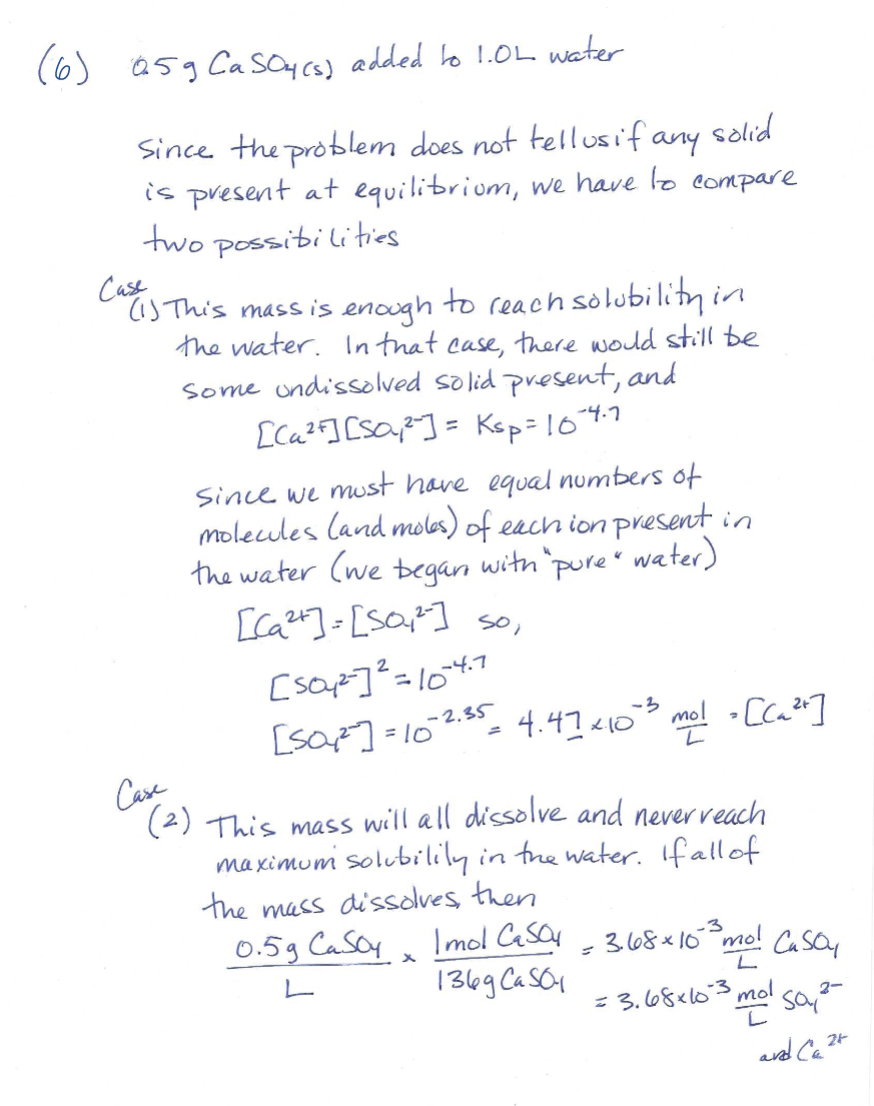 (6) 0.5 g CaSO4(s) added to 1.0L water
Since the problem does not tell us if any solid
is present at equilibrium, we have to compare
two possibilities
Case
(1) This mass is enough to reach solubility in
the water. In that case, there would still be
some undissolved solid present, and
[Ca²⁺][SO₄²⁻] = Ksp = 10⁻⁴·⁷
Since we must have equal numbers of
molecules (and moles) of each ion present in
the water (we began with "pure" water)
[Ca²⁺] = [SO₄²⁻] so,
[SO₄²⁻]² = 10⁻⁴·⁷
[SO₄²⁻] = 10⁻²·³⁵ = 4.47 x 10⁻³ mol/L = [Ca²⁺]
Case
(2) This mass will all dissolve and never reach
maximum solubility in the water. If all of
the mass dissolves, then
0.5 g CaSO4 / L x 1 mol CaSO4 / 136 g CaSO4 = 3.68 x 10⁻³ mol/L CaSO4
= 3.68 x 10⁻³ mol/L SO₄²⁻
and Ca²⁺